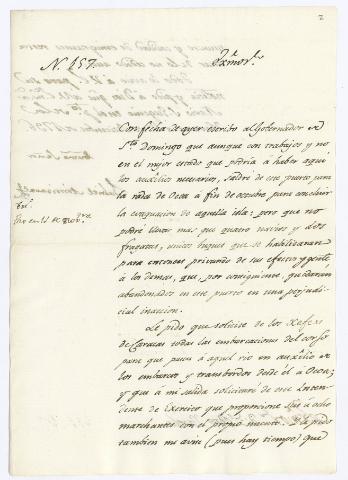 2
N. 657.
Exmo. r.
Con fecha de ayer escribo al Gobernador de
S.to domingo que aunque con trabajos y no
en el mejor estado que podria a haber aqui
los auxilios necesarios, saldre de este puerto para
la rada de Ocoa á fin de octubre para concluir
la evacuacion de aquella isla: pero que no
podre llevar mas que quatro navios y dos
fragatas, unicos buques que se habilitaran
para entonces privando de sus efectos y gente
á los demas, que, por consiguiente, quedaran
abandonados en este puerto en una perjudi-
cial inaccion.
Le pido que solicite de los Xefes
de Caracas todas las embarcaciones del corso
para que pasen á aquel rio en auxilio de
los embarcos y transbordos desde él á Ocoa;
y que a mi salida solicitaré de este Inten-
dente de Exercito que proporcione seis ú ocho
marchantes con el propio intento. Le pido
tambien me avise (pues hay tiempo) que